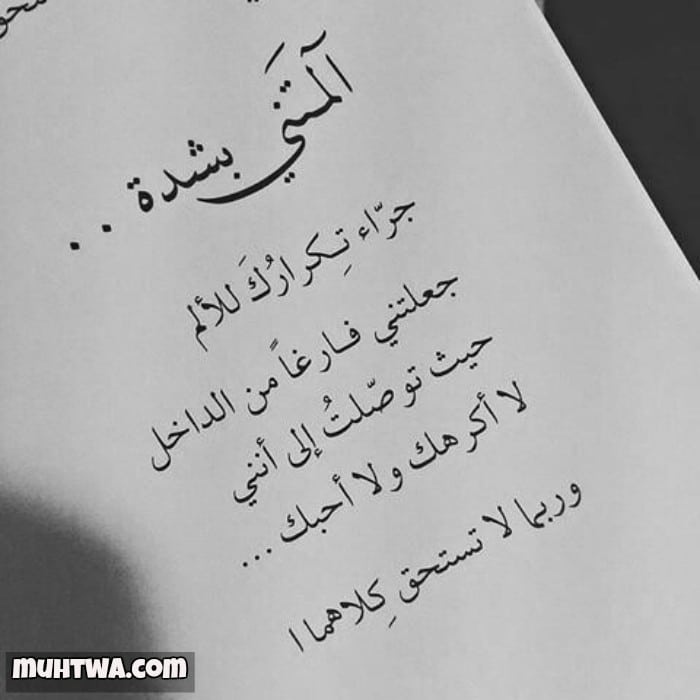 آلمتَني بشدة . .
جرّاء تِكرارُكَ للألم
جعلتني فارغاً من الداخل
حيث توصّلتُ إلى أنني
لا أكرهك ولا أحبك ...
وربما لا تستحق كِلاهما !
MUHTWA.COM